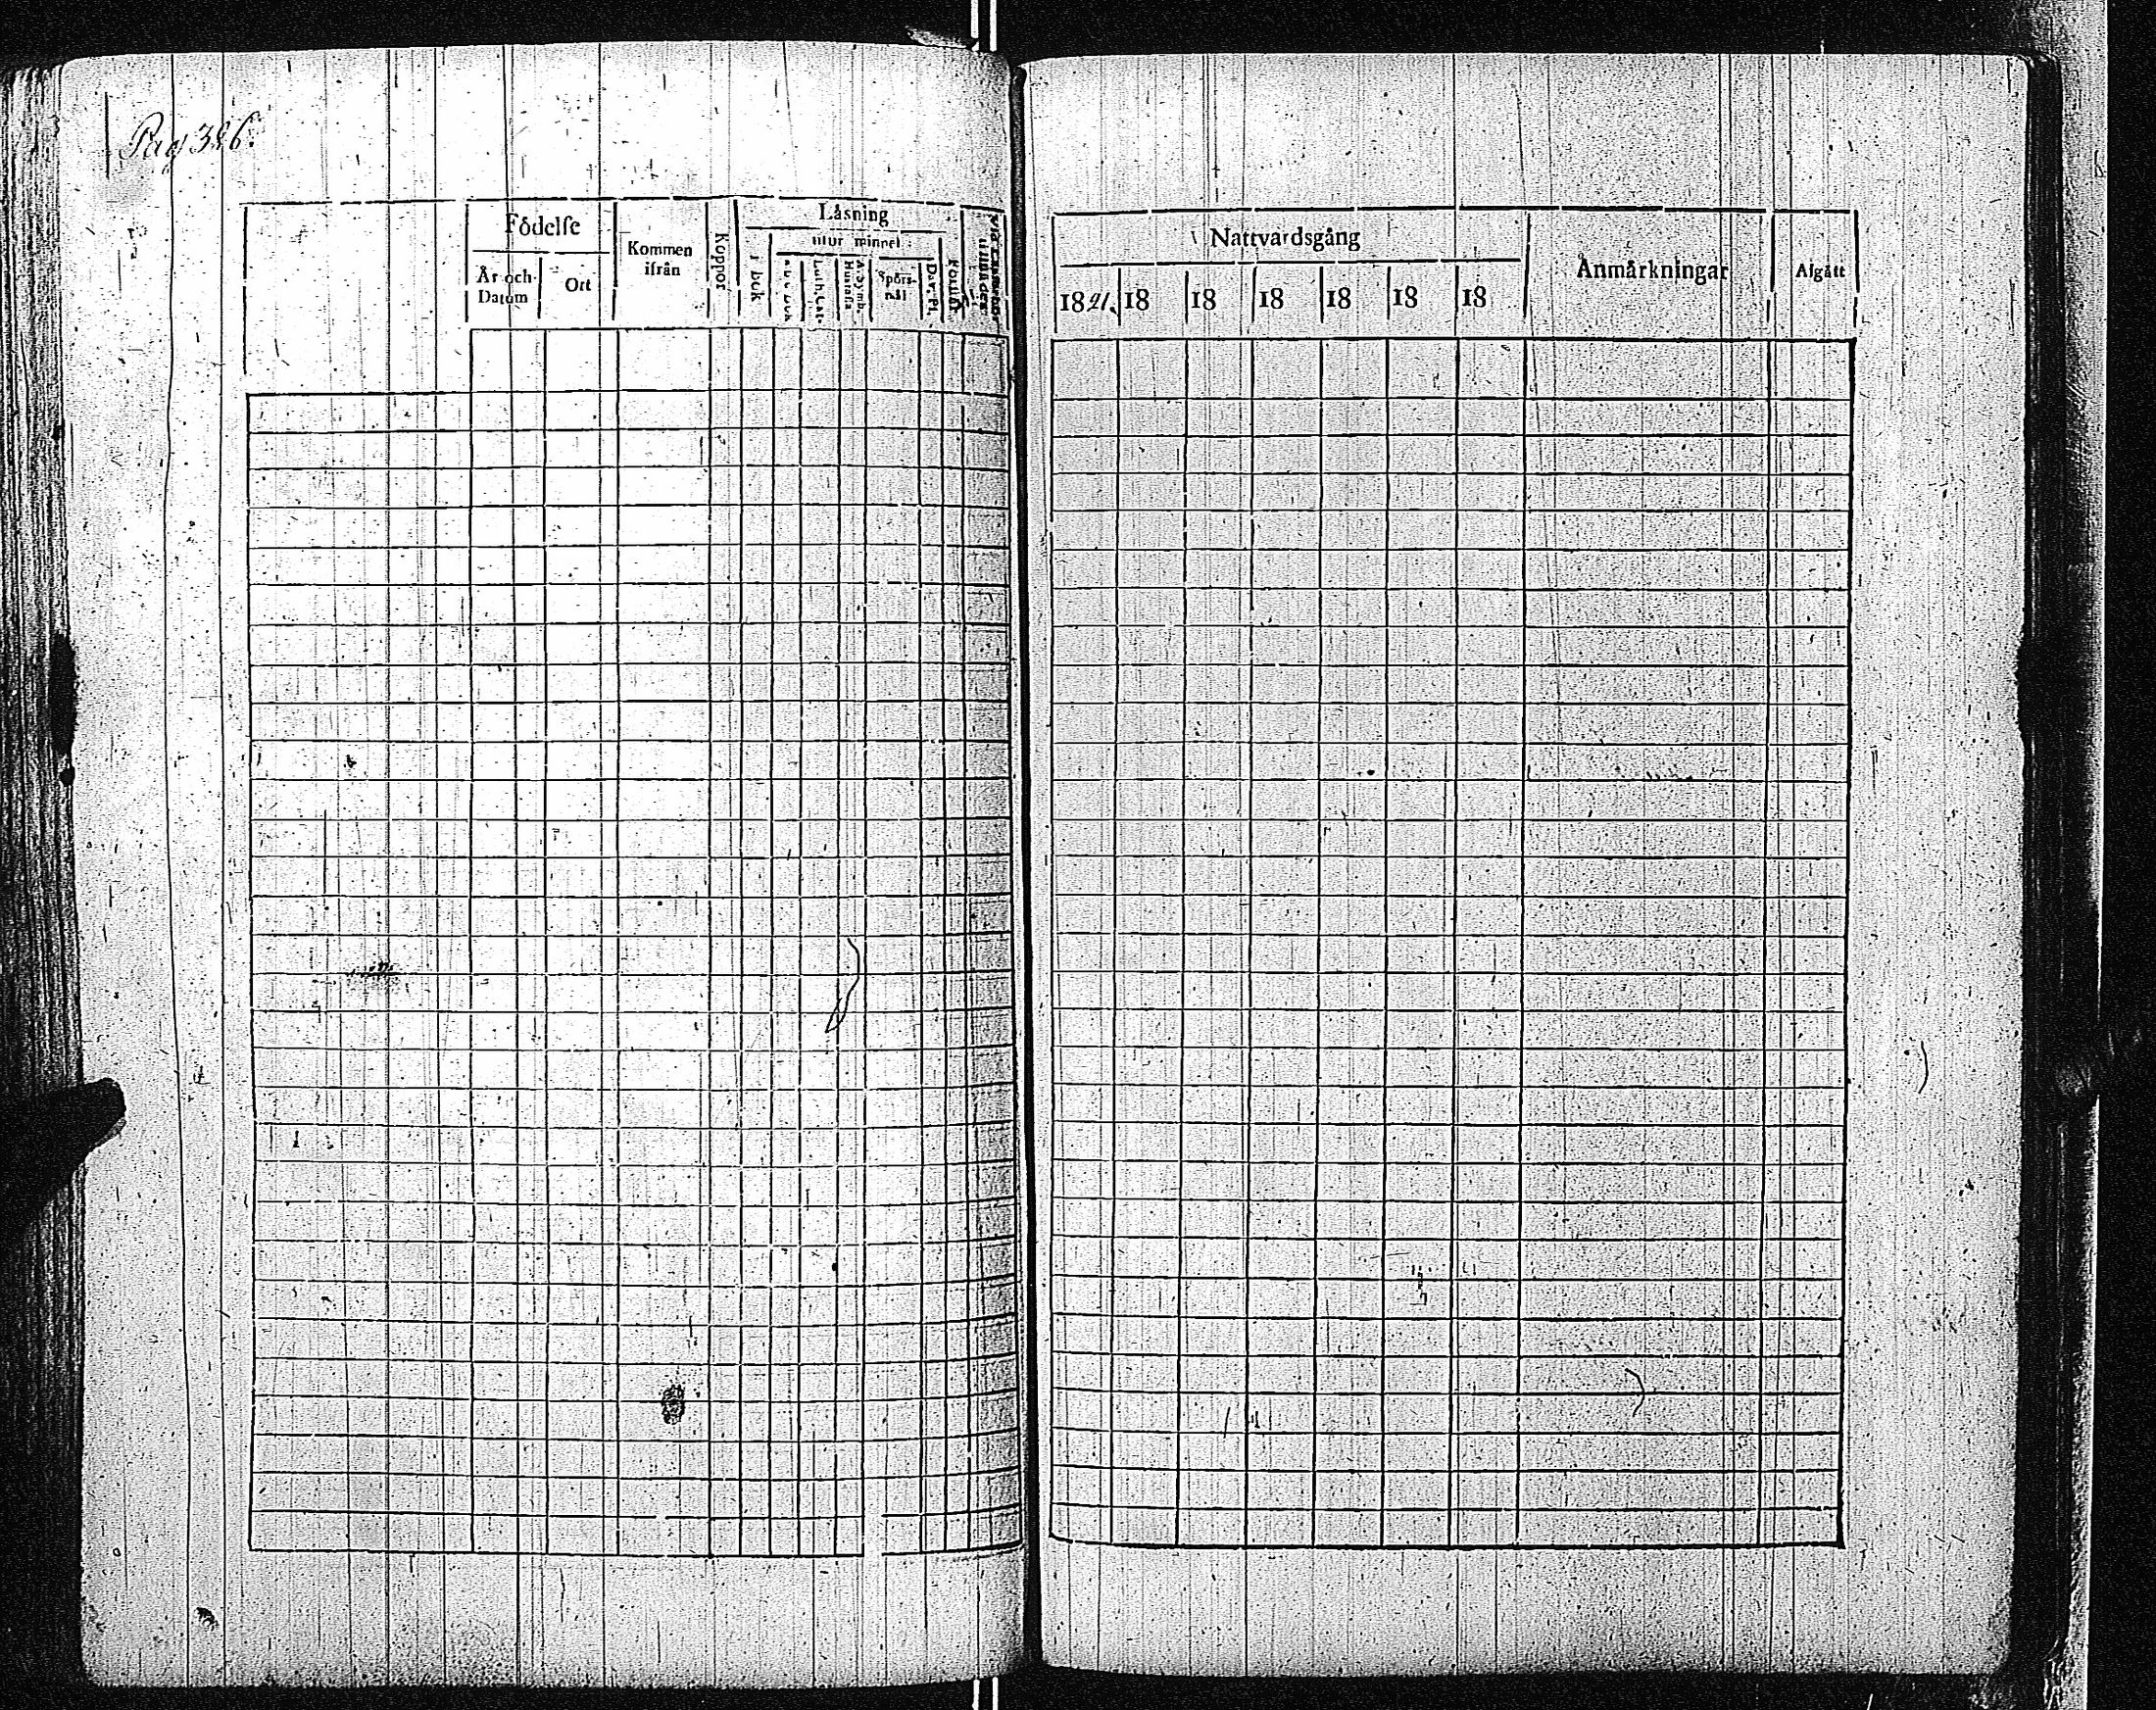 Pag 386.
Födelse
År och Datum
Ort
Kommen ifrån
Koppor
Läsning
i bok
utur minnet
Luth. Cat.
Hustafla
A. Symb.
Spörsmål
Dav. Ps.
Förstår
Nattvardsgång
1821. 18 18 18 18 18 18
Anmärkningar
Afgått